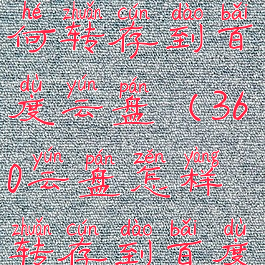 hé zhuǎn cún dào bǎi
何转存到百
dù yún pán
度云盘（36
yún pán zěn yàng
0云盘怎样
zhuǎn cún dào bǎi dù
转存到百度